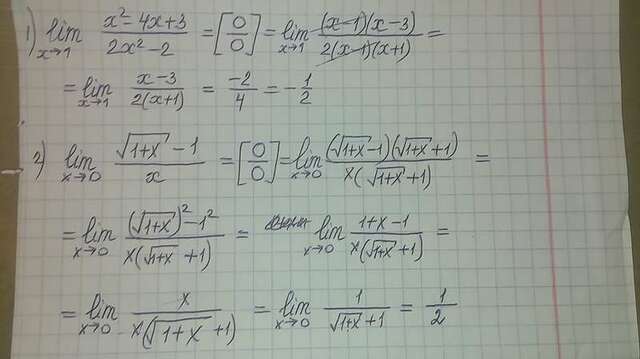 1) lim x→1 (x² - 4x + 3)/(2x² - 2) = [0/0] = lim x→1 ((x-1)(x-3))/(2(x-1)(x+1)) =
= lim x→1 (x-3)/(2(x+1)) = -2/4 = -1/2
2) lim x→0 (√(1+x) - 1)/x = [0/0] = lim x→0 ((√(1+x) - 1)(√(1+x) + 1))/(x(√(1+x) + 1)) =
= lim x→0 ((√(1+x))² - 1²)/(x(√(1+x) + 1)) = lim x→0 (1+x-1)/(x(√(1+x) + 1)) =
= lim x→0 x/(x(√(1+x) + 1)) = lim x→0 1/(√(1+x) + 1) = 1/2